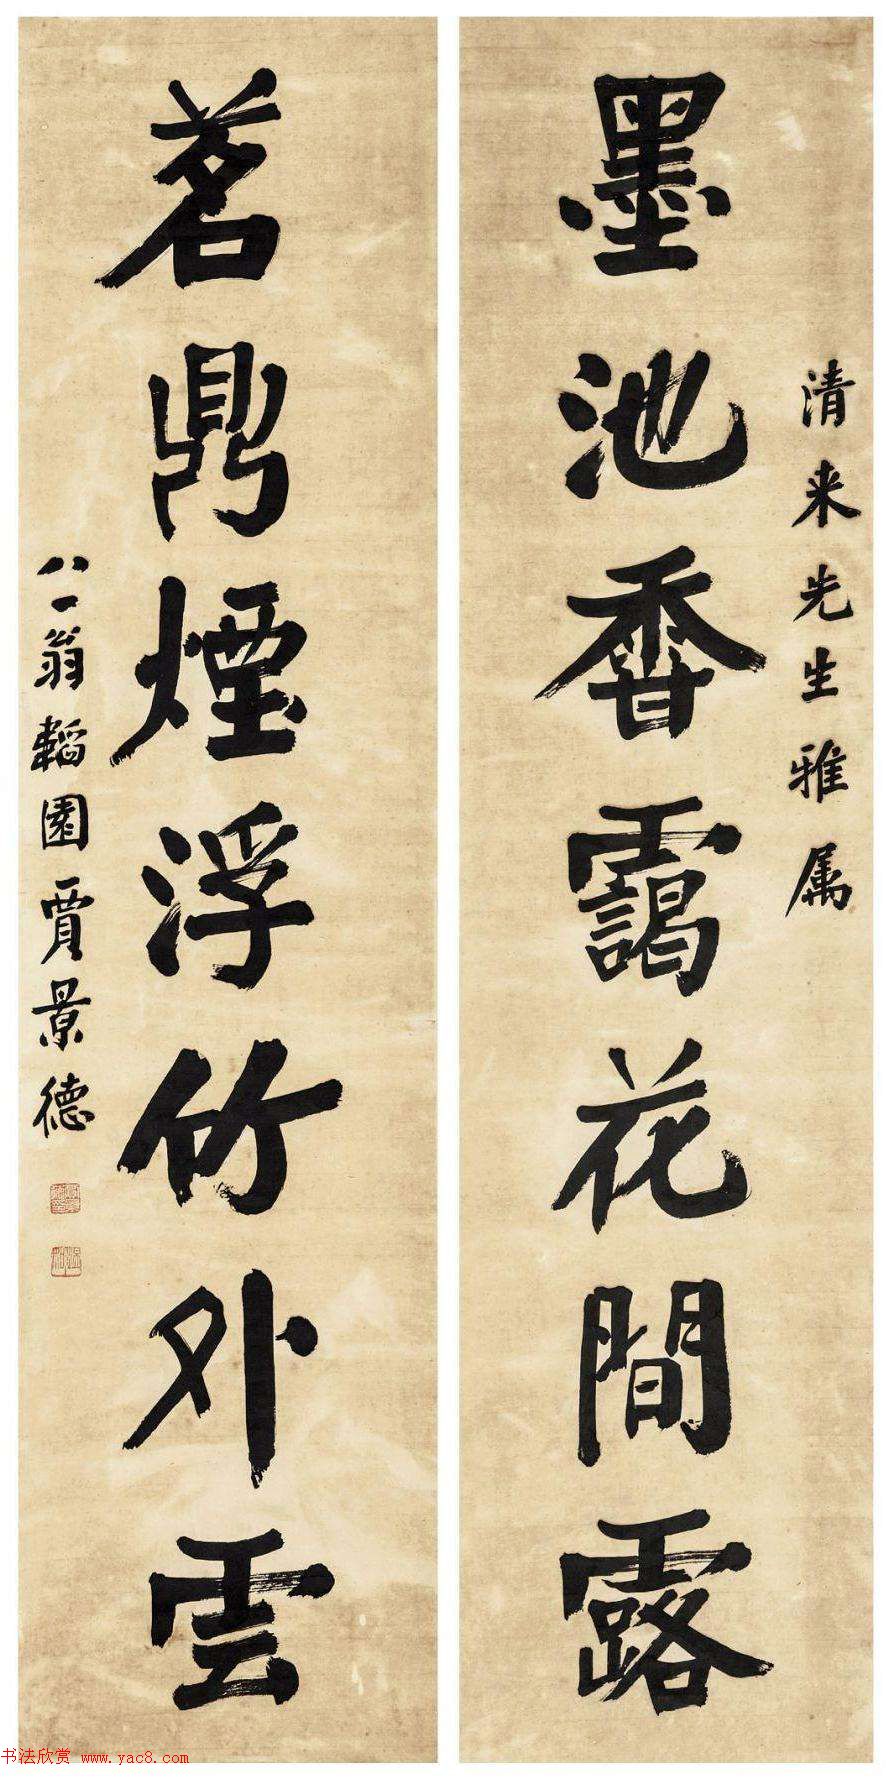 清来先生雅属
墨池香靄花間露
茗鼎煙浮竹外雲
八一翁韜園賈景德
书法欣赏 www.yac8.com